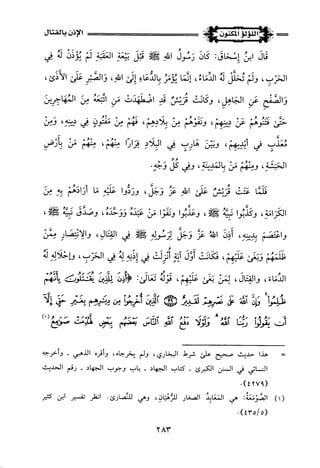 الإذن بالقتال
اللؤلؤ المكنون
قَالَ ابنُ إِسْحَاقَ: كَانَ رَسُولُ اللهِ ﷺ قَبْلَ بَيْعَةِ العَقَبَةِ لَمْ يُؤْذَنْ لَهُ فِي
الحَرْبِ، وَلَمْ تُحْلَلْ لَهُ الدِّمَاءُ، إِنَّمَا يُؤْمَرُ بِالدُّعَاءِ إِلَى اللهِ، وَالصَّبْرِ عَلَى الأَذَى،
وَالصَّفْحِ عَنِ الجَاهِلِ، وَكَانَتْ قُرَيْشٌ قَدِ اضْطَهَدَتْ مَنِ اتَّبَعَهُ مِنَ المُهَاجِرِينَ
حَتَّى فَتَنُوهُمْ عَنْ دِينِهِمْ، وَنَفَوْهُمْ مِنْ بِلَادِهِمْ، فَهُمْ مِنْ مَفْتُونٍ فِي دِينِهِ، وَمِنْ
مُعَذَّبٍ فِي أَيْدِيهِمْ، وَبَيْنَ هَارِبٍ فِي البِلَادِ فِرَارًا مِنْهُمْ، مِنْهُمْ مَنْ بِأَرْضِ
الحَبَشَةِ، وَمِنْهُمْ مَنْ بِالمَدِينَةِ، وَفِي كُلِّ وَجْهٍ.
فَلَمَّا عَتَتْ قُرَيْشٌ عَلَى اللهِ عَزَّ وَجَلَّ، وَرَدُّوا عَلَيْهِ مَا أَرَادَهُمْ بِهِ مِنَ
الكَرَامَةِ، وَكَذَّبُوا نَبِيَّهُ ﷺ، وَعَذَّبُوا وَنَفَوْا مَنْ عَبَدَهُ وَوَحَّدَهُ، وَصَدَّقَ نَبِيَّهُ ﷺ،
وَاعْتَصَمَ بِدِينِهِ، أَذِنَ اللهُ عَزَّ وَجَلَّ لِرَسُولِهِ ﷺ فِي القِتَالِ، وَالِانْتِصَارِ مِمَّنْ
ظَلَمَهُمْ وَبَغَى عَلَيْهِمْ، فَكَانَتْ أَوَّلَ آيَةٍ أُنْزِلَتْ فِي إِذْنِهِ لَهُ فِي الحَرْبِ، وَإِحْلَالِهِ لَهُ
الدِّمَاءَ، وَالقِتَالَ، لِمَنْ بَغَى عَلَيْهِمْ، قَوْلُهُ تَعَالَى: ﴿أُذِنَ لِلَّذِينَ يُقَٰتَلُونَ بِأَنَّهُمْ
ظُلِمُوا۟ وَإِنَّ ٱللَّهَ عَلَىٰ نَصْرِهِمْ لَقَدِيرٌ ۝ ٱلَّذِينَ أُخْرِجُوا۟ مِن دِيَٰرِهِم بِغَيْرِ حَقٍّ إِلَّآ
أَن يَقُولُوا۟ رَبُّنَا ٱللَّهُ وَلَوْلَا دَفْعُ ٱللَّهِ ٱلنَّاسَ بَعْضَهُم بِبَعْضٍ لَّهُدِّمَتْ صَوَٰمِعُ (١)
= هذا حديث صحيح على شرط البخاري، ولم يخرجاه، وأقره الذهبي - وأخرجه
النسائي في السنن الكبرى - كتاب الجهاد - باب وجوب الجهاد - رقم الحديث
(٤٢٧٩).
(١) الصَّوْمَعَةُ: هي المَعَابِدُ الصغار للرُّهْبَانِ، وهي للنَّصَارَى. انظر تفسير ابن كثير
(٤٣٥/٥).
٢٨٣